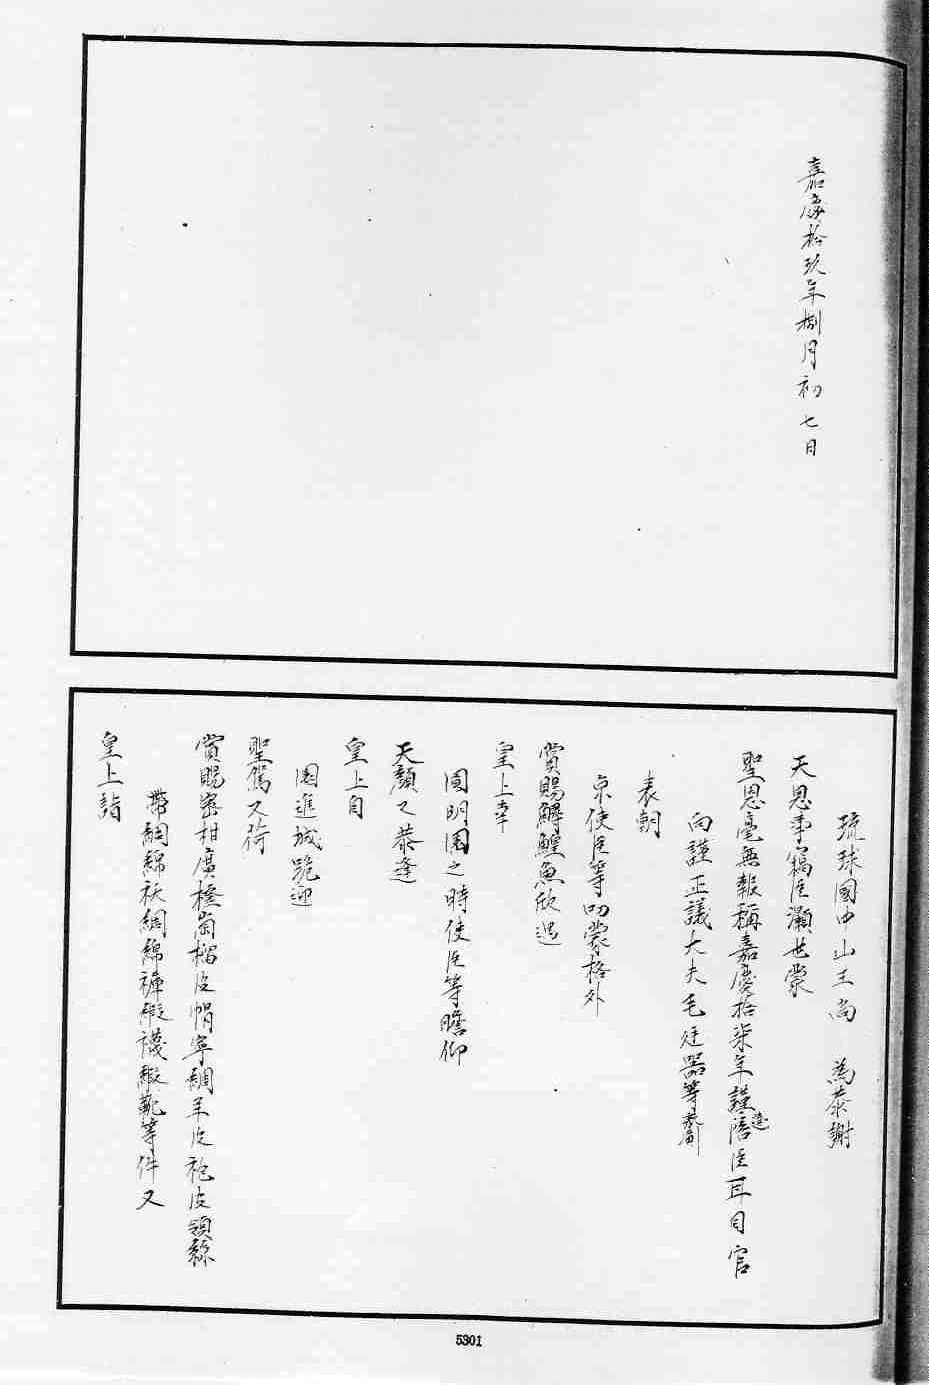 嘉慶拾玖年捌月初七日
琉球國中山王尚 為恭謝
天恩事竊臣灝世蒙
聖恩毫無報稱嘉慶拾柒年謹遣陪臣耳目官
向謹正議大夫毛廷器等齎
表朝
京使臣等叨蒙格外
賞賜鱘鰉魚欣遇
皇上幸
圓明園之時使臣等瞻仰
天顏又恭逢
皇上自
園進城跪迎
聖駕又荷
賞賜蜜柑廣橙崗榴皮帽寧綢羊皮袍皮領絲
帶綢綿襖綢綿褲緞襪緞靴等件又
皇上詣
5301